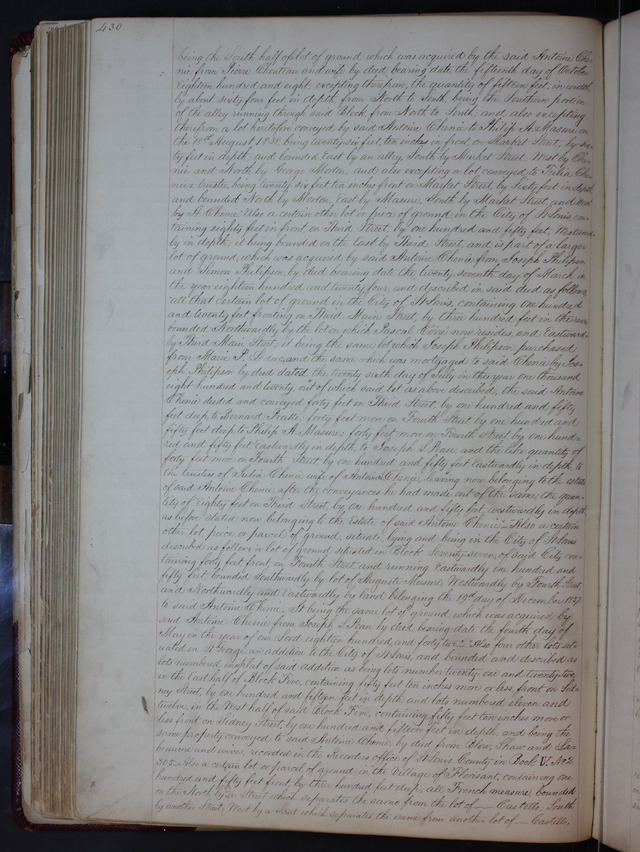 430
being the South half of lot of ground which was acquired by the said Antoine Che-
nie from Pierre Chouteau and wife by deed bearing date the fifteenth day of October
Eighteen hundred and eight, excepting therefrom, the quantity of fifteen feet, in width
by about sixty four feet in depth from North to South, being the Southern portion
of the alley running through said Block from North to South, and also excepting
therefrom a lot heretofore conveyed by said Antoine Chenie to Philip A. Masure on
the August 1838, being twenty six feet ten inches in front, on Market Street, by six-
ty feet in depth, and bounded East by an alley, South by Market Street, West by Che-
nie and North by George Morton, and also excepting a lot conveyed to Julia Che-
nie's trustee, being twenty six feet ten inches front on Market Street by Sixty feet in depth
and bounded North by Morton, East by Masure, South by Market Street, and West
by A. Chenie. Also a certain other lot or piece of ground, in the City of St Louis con-
taining eighty feet in front on Third Street, by one hundred and fifty feet, Westward-
ly in depth, it being bounded on the East by Third Street, and is part of a larger
lot of ground, which was acquired by said Antoine Chenie from Joseph Philipson
and Simon Philipson, by deed bearing date the twenty seventh day of March in
the year eighteen hundred and twenty four, and described in said deed as follows
"all that certain lot of ground in the City of St Louis, containing one hundred
and twenty feet fronting on Third Main Street, by three hundred feet in the rear
bounded Northwardly by the lot on which Pascal Cerré now resides, and Eastward-
ly Third Main Street, it being the same lot which Joseph Philipson purchased
from Marie P. Leduc, and the same which was mortgaged to said Chenie by Jos-
eph Philipson by deed dated the twenty sixth day of July in the year one thousand
eight hundred and twenty out of which said lot as above described, the said Antoine
Chenie deeded and conveyed forty feet on Third Street, by one hundred and fifty
feet deep to Bernard Pratte, forty feet more on Fourth Street by one hundred and
fifty feet deep to Philip A. Masure; forty feet more on Fourth Street by one hund-
red and fifty feet Eastwardly in depth, to Joseph L. Pase, and the like quantity of
forty feet more on Fourth Street by one hundred and fifty feet Eastwardly in depth, to
the trustees of Julia Chenie wife of Antoine Chenie, leaving now belonging to the estate
of said Antoine Chenie after the conveyances he had made out of the same, the quan-
tity of Eighty feet on Third Street, by one hundred and fifty feet, westwardly in depth
as before stated now belonging to the Estate of said Antoine Chenie. Also a certain
other lot piece or parcel of ground, situate, lying and being in the City of St Louis
described as follows a lot of ground situated in Block Seventy-seven, of said City con-
taining forty feet front on Fourth Street and running Eastwardly one hundred and
fifty feet bounded Southwardly by lot of Auguste Masure, Westwardly by Fourth Street,
and Northwardly and Eastwardly by land belonging the 19th day of December 1827
to said Antoine Chenie, It being the same lot of ground which was acquired by
said Antoine Chenie from Joseph L. Pase by deed bearing date the fourth day of
May in the year of our Lord eighteen hundred, and forty two. Also four other lots sit-
uated in St George, an addition to the City of St Louis, and bounded and described as
lots numbered on plat of said addition as being lots number twenty one and twenty-two,
in the East half of Block Five, containing fifty feet ten inches more or less, front on Sid-
ney Street, by one hundred and fifteen feet in depth and lots numbered eleven and
twelve, in the West half of said Block Five, containing fifty feet ten inches more or
less front on Sidney Street, by one hundred and fifteen feet in depth, and being the
same property conveyed to said Antoine Chenie, by deed from Blow, Shaw and La-
beaume and wives, recorded in the Recorders office of St Louis County in Book V. No 2
305. Also a certain lot or parcel of ground, in the Village of Florissant, containing one
hundred and fifty feet front, by three hundred feet deep, all French measure bounded
on the North by a Street which separates the same from the lot of — Castello, South
by another Street, West by a Street which separates the same from another lot of — Castello,